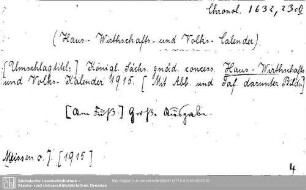 Chronol. 1632, 23 d
(Haus- Wirthschafts- und Volks-Calender)
[Umschlagtitel:] Königl. Sächs. gnäd. concess. Haus- Wirthschafts-
und Volks-Kalender 1915. [Mit Abb. und Taf. darunter Bildn.]
[Am Fuß] Große Ausgabe.
Meissen o. J. [1915]
4
Sächsische Landesbibliothek -
Staats- und Universitätsbibliothek Dresden